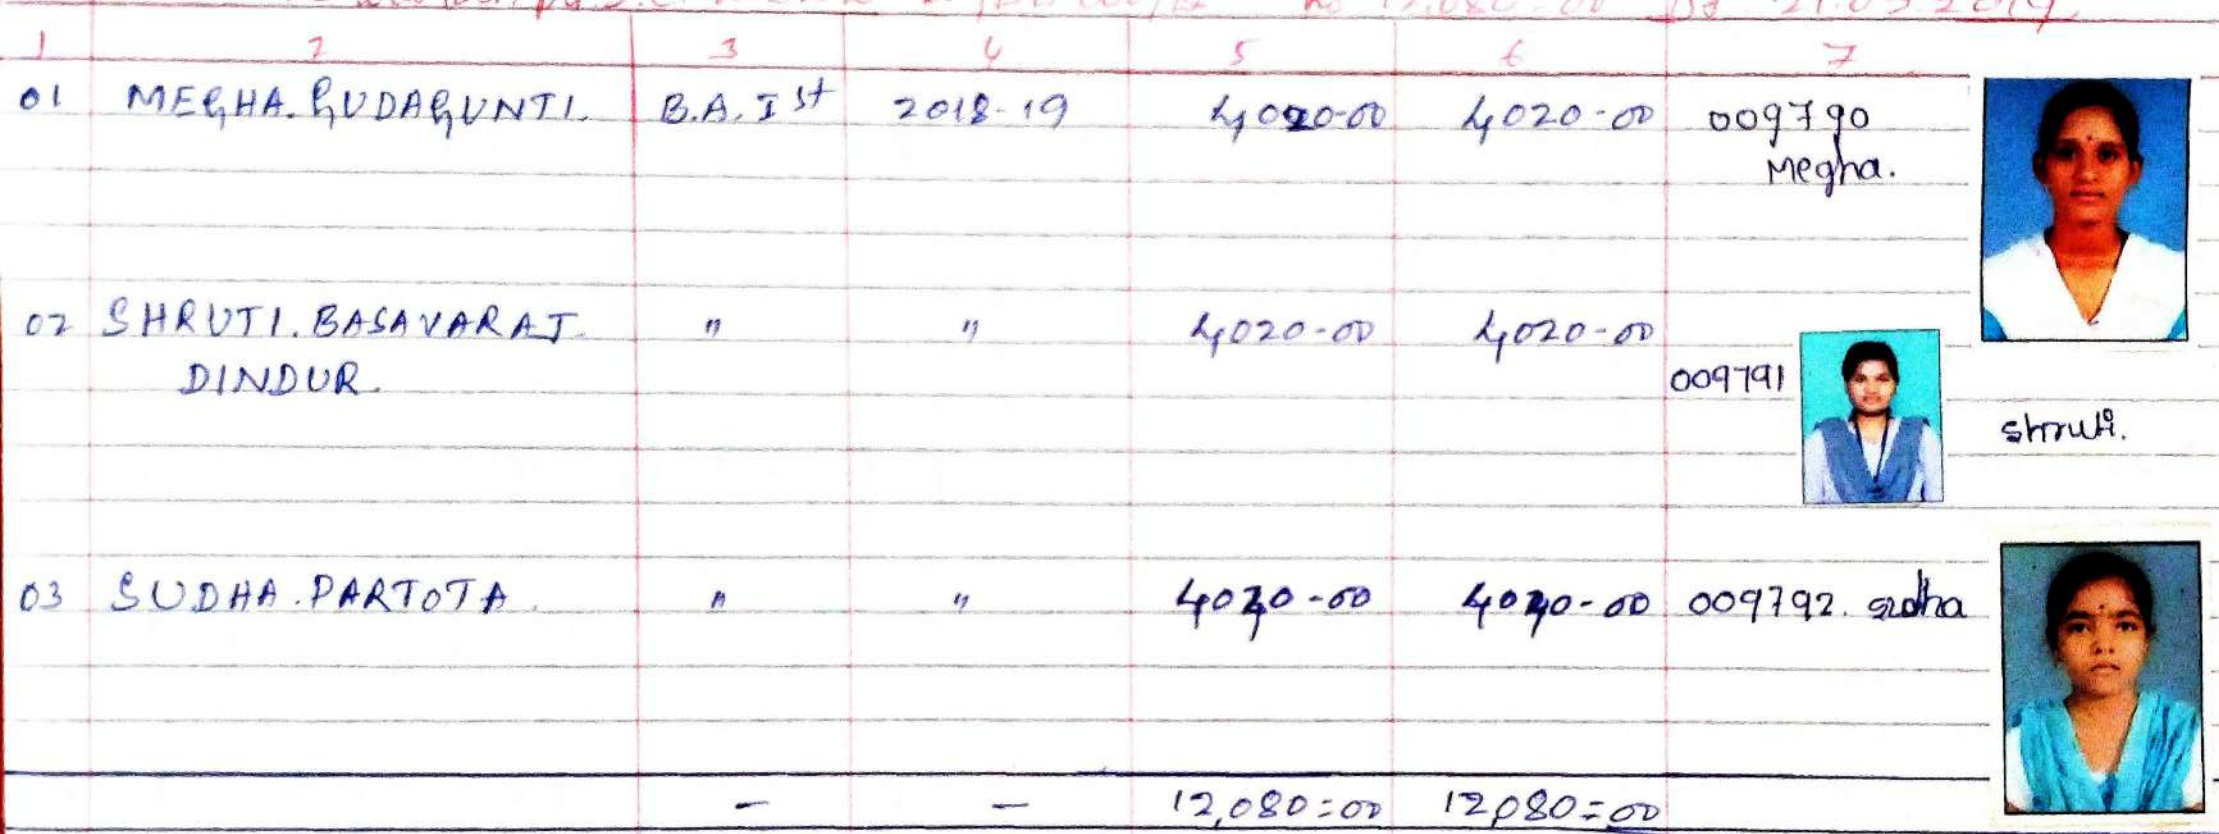 12,080-00 21.03.2019
1 2 3 4 5 6 7
01 MEGHA. GUDAGUNTI. B.A. Ist 2018-19 4020-00 4020-00 009790
Megha.
02 SHRUTI. BASAVARAJ. " " 4020-00 4020-00
DINDUR. 009791
Shruti.
03 SUDHA. PARTOTA. " " 4040-00 4040-00 009792. Sudha
- - 12,080=00 12,080=00